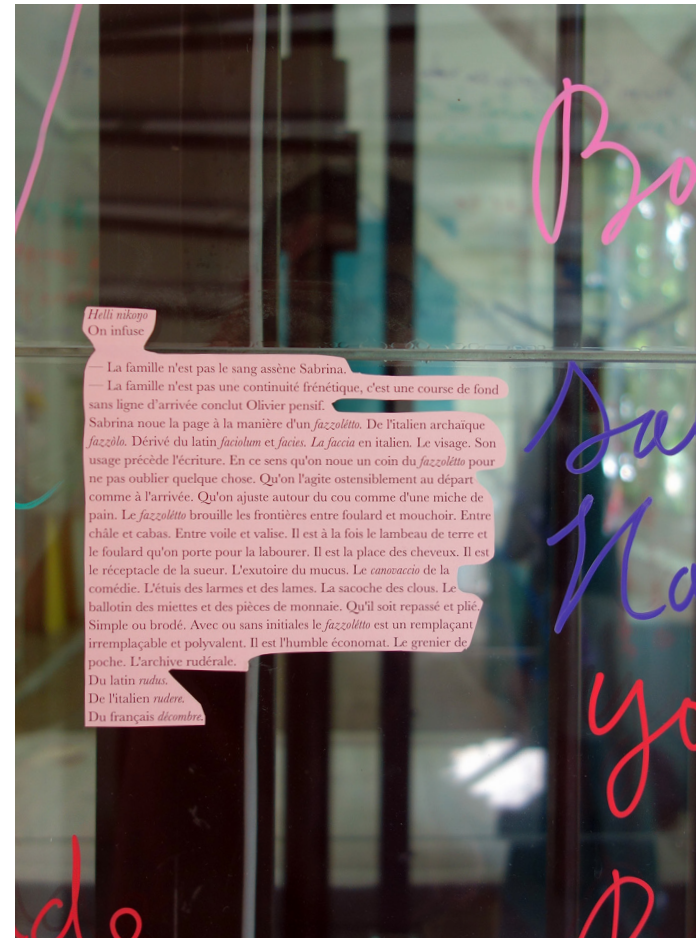 Helli nikoŋo
On infuse
— La famille n'est pas le sang assène Sabrina.
— La famille n'est pas une continuité frénétique, c'est une course de fond
sans ligne d'arrivée conclut Olivier pensif.
Sabrina noue la page à la manière d'un fazzolétto. De l'italien archaïque
fazzòlo. Dérivé du latin faciolum et facies. La faccia en italien. Le visage. Son
usage précède l'écriture. En ce sens qu'on noue un coin du fazzolétto pour
ne pas oublier quelque chose. Qu'on l'agite ostensiblement au départ
comme à l'arrivée. Qu'on ajuste autour du cou comme d'une miche de
pain. Le fazzolétto brouille les frontières entre foulard et mouchoir. Entre
châle et cabas. Entre voile et valise. Il est à la fois le lambeau de terre et
le foulard qu'on porte pour la labourer. Il est la place des cheveux. Il est
le réceptacle de la sueur. L'exutoire du mucus. Le canovaccio de la
comédie. L'étuis des larmes et des lames. La sacoche des clous. Le
ballotin des miettes et des pièces de monnaie. Qu'il soit repassé et plié.
Simple ou brodé. Avec ou sans initiales le fazzolétto est un remplaçant
irremplaçable et polyvalent. Il est l'humble économat. Le grenier de
poche. L'archive rudérale.
Du latin rudus.
De l'italien rudere.
Du français décombre.
Bo
Sa
No
yo